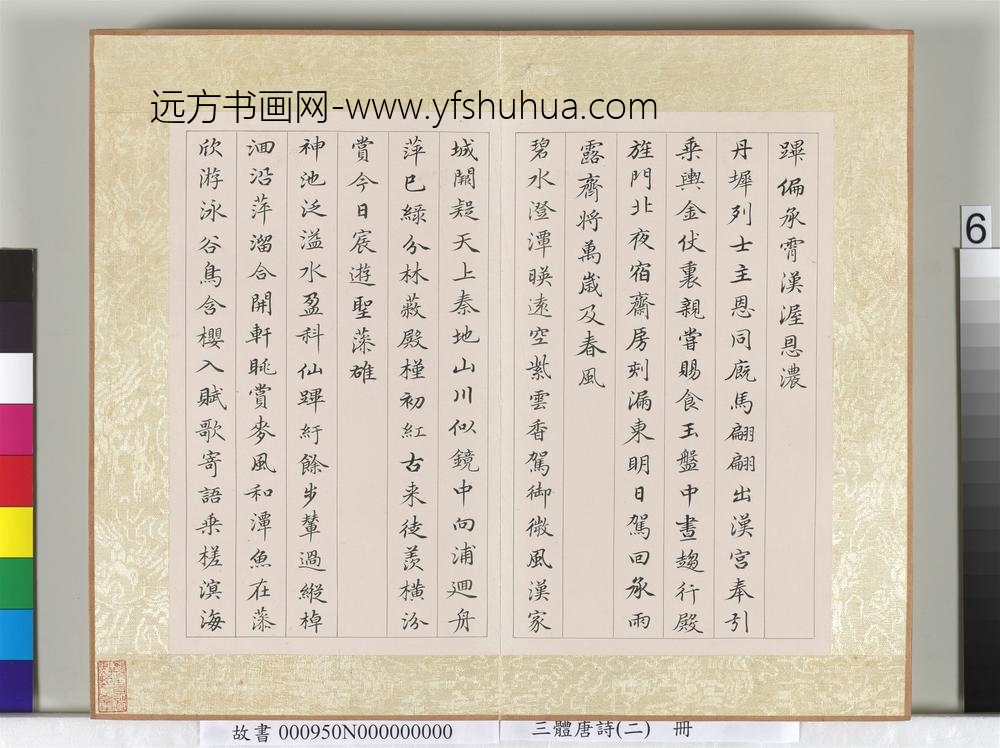 远方书画网-www.yfshuhua.com
蹕偏承霄漢渥恩濃
丹墀列士主恩同廐馬翩翩出漢宮奉引
乘輿金仗裏親嘗賜食玉盤中晝趨行殿
旌門北夜宿齋房刻漏東明日駕回承雨
露齊將萬歲及春風
碧水澄潭暎遠空紫雲香駕御微風漢家
城闕疑天上秦地山川似鏡中向浦迴舟
萍已綠分林蔽殿槿初紅古来徒羨橫汾
賞今日宸遊聖藻雄
神池泛溢水盈科仙蹕紆餘步輦過縱棹
洄沿萍溜合開軒眺賞麥風和潭魚在藻
欣游泳谷鳥含櫻入賦歌寄語乘槎溟海
6
故書 000950N000000000
三體唐詩(二) 冊